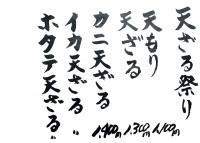 天ざる祭り
天もり
天ざる
カニ天ざる〃
イカ天ざる〃
ホタテ天ざる〃
1,100円
1,300円
1,400円